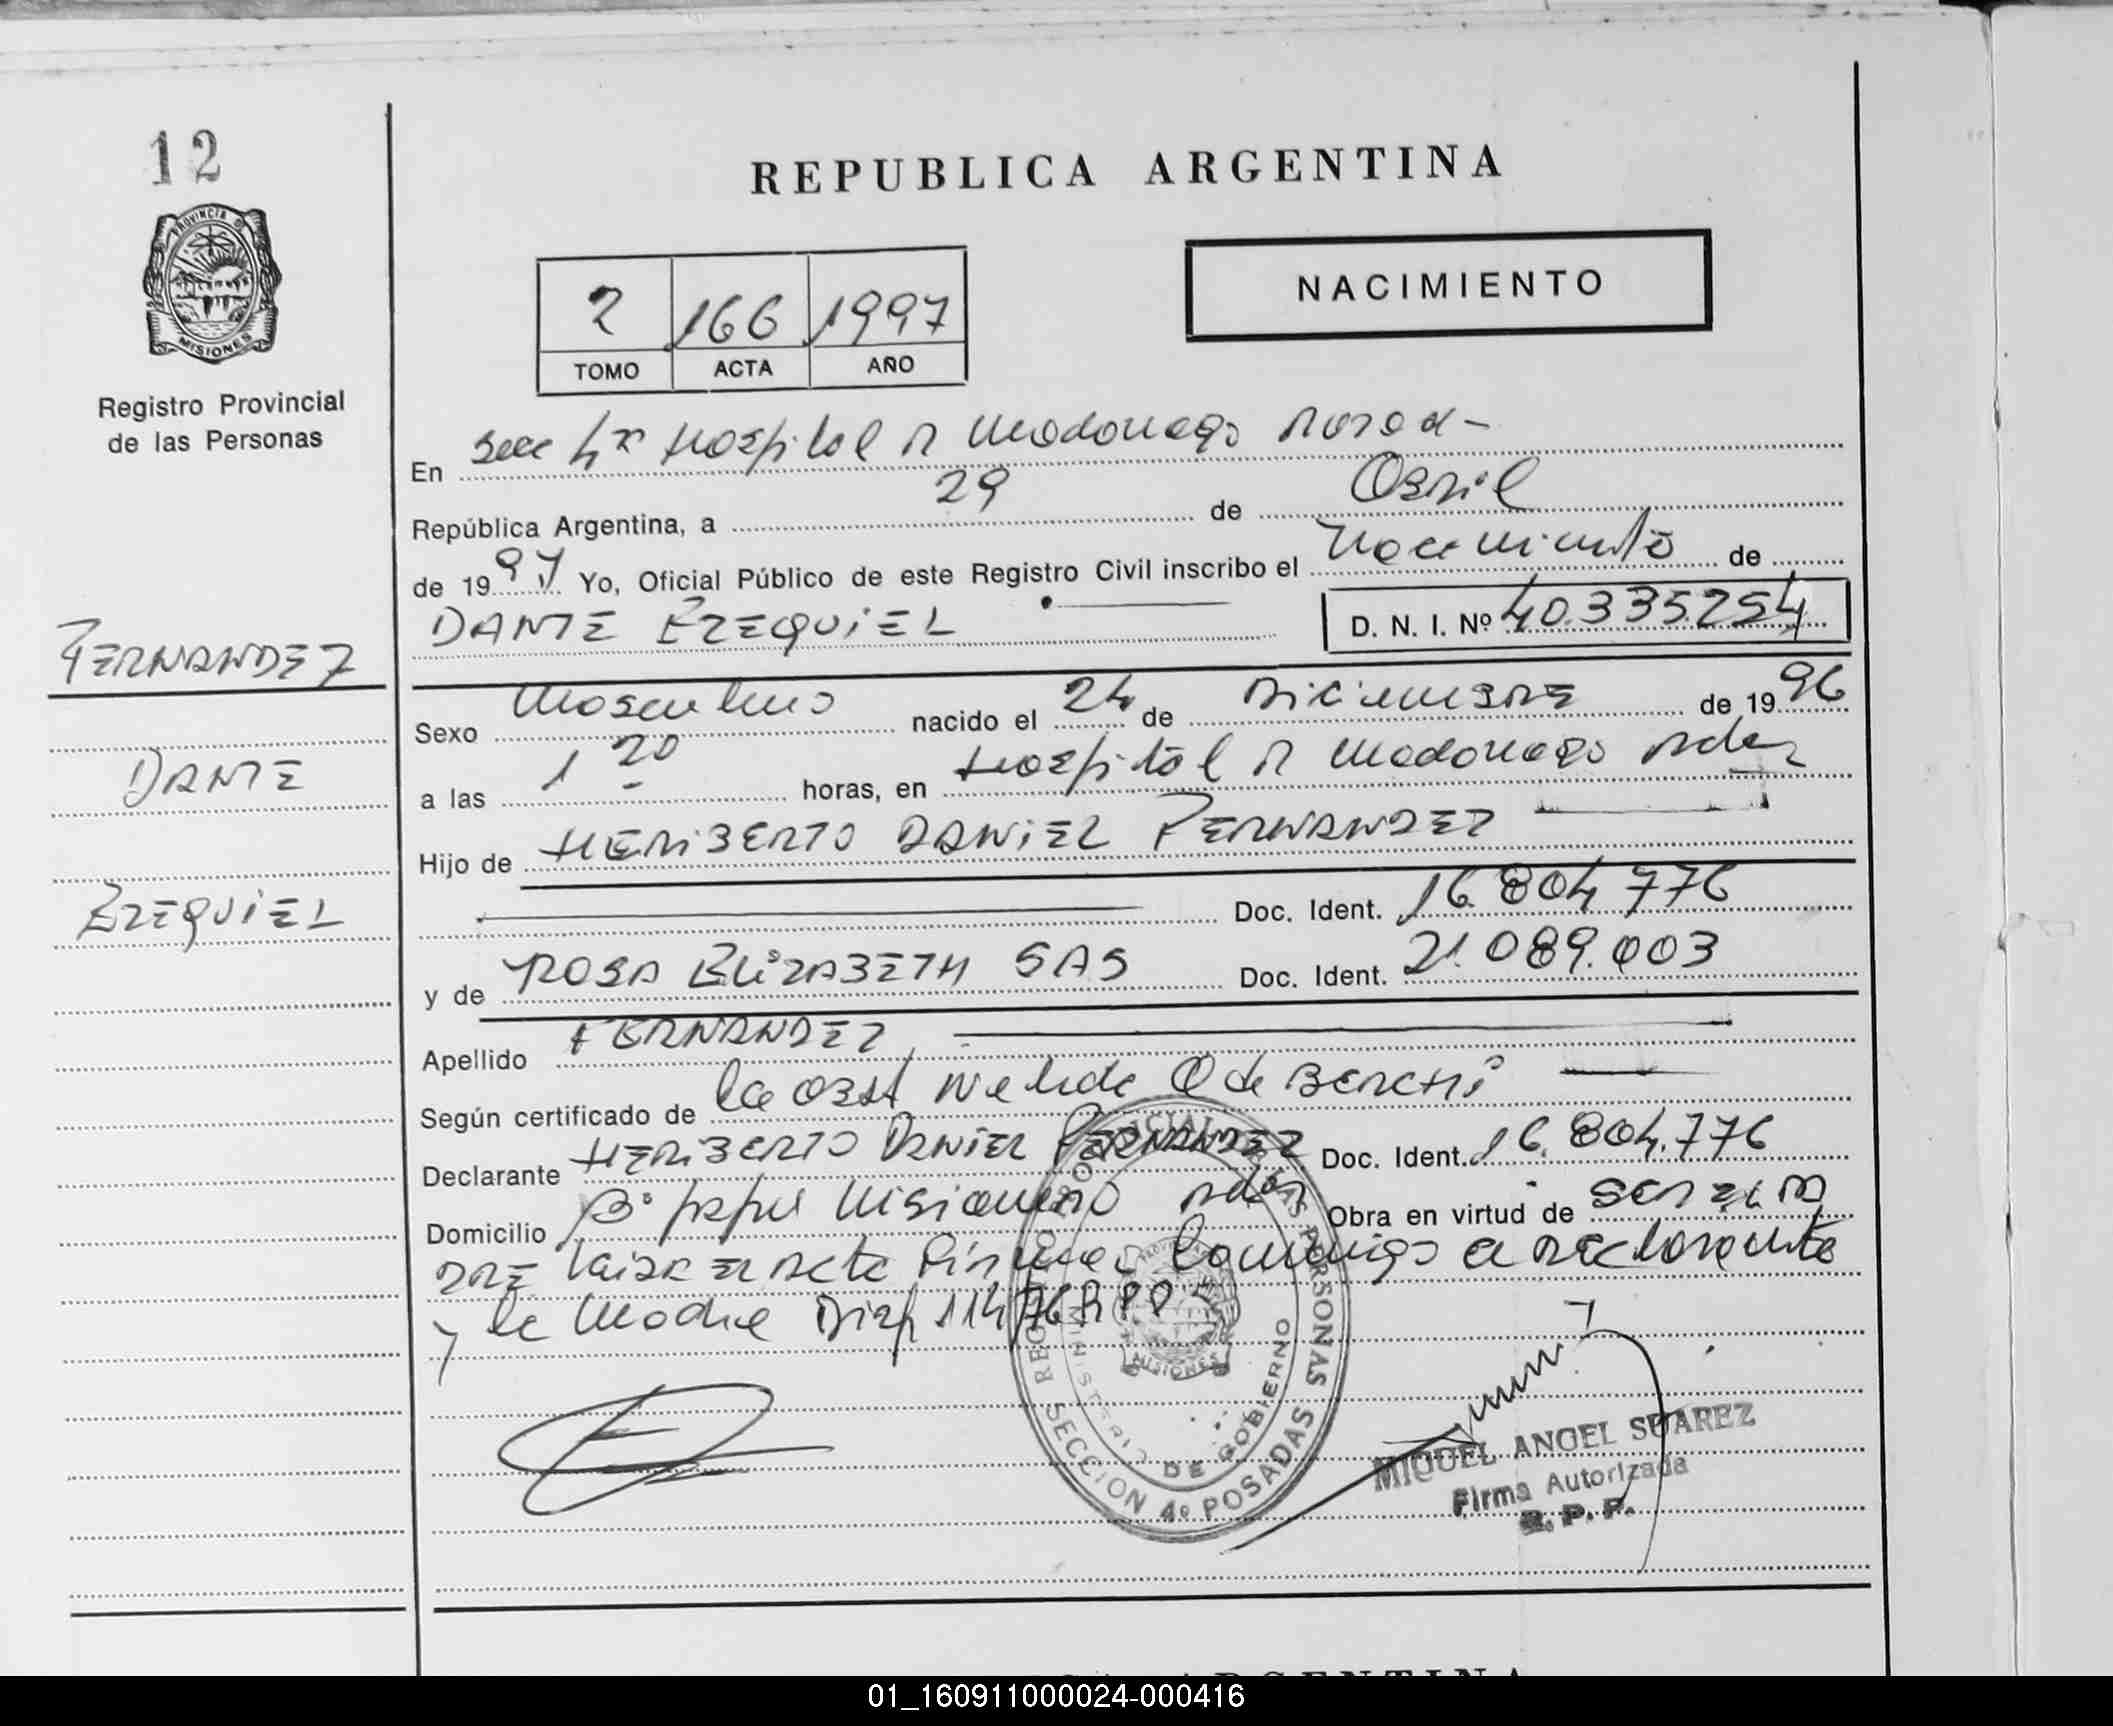 12
REPUBLICA ARGENTINA
PROVINCIA DE
MISIONES
NACIMIENTO
2 166 1997
TOMO ACTA AÑO
Registro Provincial
de las Personas
En Secc 4ta Hospital R Madariaga
República Argentina, a 29 de Abril
de 1997 Yo, Oficial Público de este Registro Civil inscribo el Nacimiento de
DANTE EZEQUIEL D. N. I. Nº 40.335.254
FERNANDEZ
Sexo Masculino nacido el 24 de Diciembre de 1996
DANTE
a las 1 20 horas, en Hospital R Madariaga
Hijo de HERIBERTO DANIEL FERNANDEZ
EZEQUIEL
Doc. Ident. 16.804.776
y de ROSA ELIZABETH SAS Doc. Ident. 21.089.003
Apellido FERNANDEZ
Según certificado de la Obst de
Declarante HERIBERTO DANIEL FERNANDEZ Doc. Ident. 16.804.776
Domicilio Bº Misionero Obra en virtud de ser el PA
DRE el Acta firma Conmigo el declarante
y la Madre 114/76 RPP
REGISTRO PROVINCIAL DE LAS PERSONAS
MINISTERIO DE GOBIERNO
MISIONES
SECCION 4º POSADAS
MIGUEL ANGEL SUAREZ
Firma Autorizada
R. P. P.
ARGENTINA
01_160911000024-000416